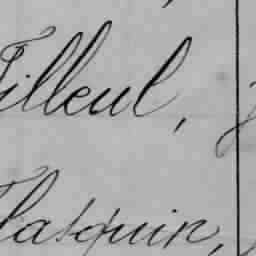 Tilleul,
Flasquin,